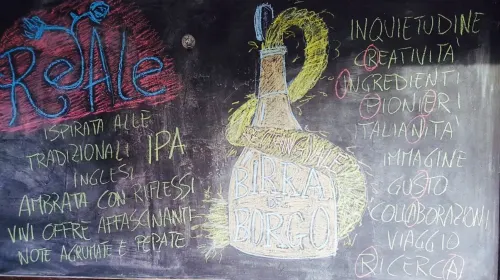 ReAle
ISPIRATA ALLE
TRADIZIONALI IPA
INGLESI
AMBRATA CON RIFLESSI
VIVI OFFRE AFFASCINANTI
NOTE AGRUMATE E PEPATE
BIRRA
DEL
BORGO
INQUIETUDINE
CREATIVITA'
INGREDIENTI
PIONIERI
ITALIANITA'
IMMAGINE
GUSTO
COLLABORAZIONI
VIAGGIO
RICERCA